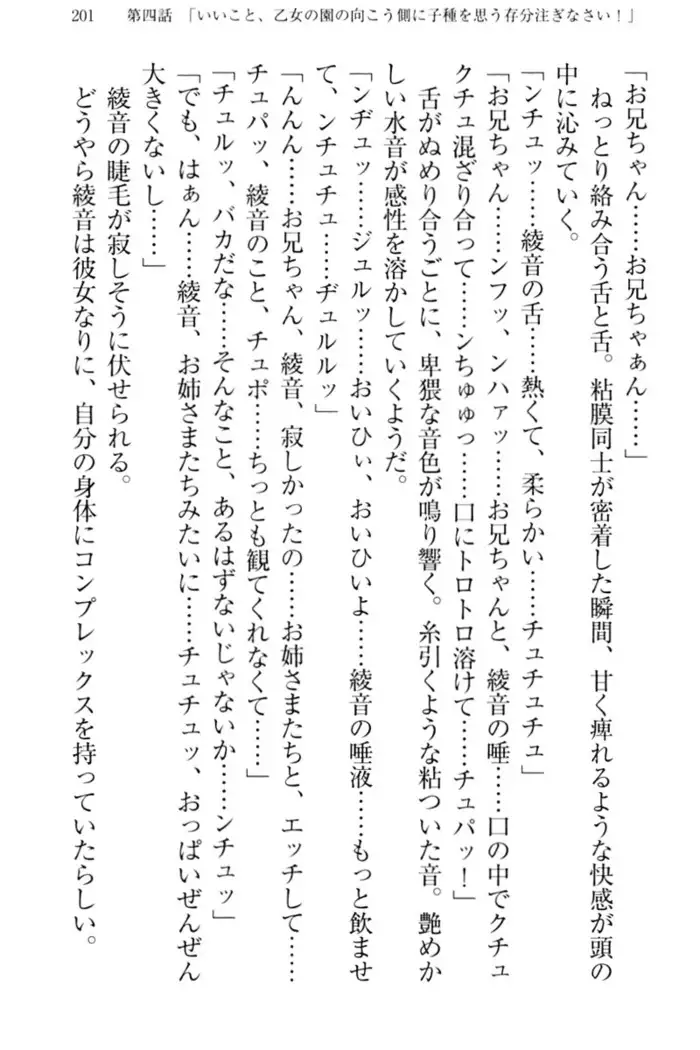 201　第四話　「いいこと、乙女の園の向こう側に子種を思う存分注ぎなさい！」
「お兄ちゃん……お兄ちゃぁん……」
ねっとり絡み合う舌と舌。粘膜同士が密着した瞬間、甘く痺れるような快感が頭の
中に沁みていく。
「ンチュッ……綾音の舌……熱くて、柔らかい……チュチュチュ」
「お兄ちゃん……ンフッ、ンハァッ……お兄ちゃんと、綾音の唾……口の中でクチュ
クチュ混ざり合って……ンちゅゅっ……口にトロトロ溶けて……チュパッ！」
舌がぬめり合うごとに、卑猥な音色が鳴り響く。糸引くような粘ついた音。艶めか
しい水音が感性を溶かしていくようだ。
「ンヂュッ……ジュルッ……おいひぃ、おいひいよ……綾音の唾液……もっと飲ませ
て、ンチュチュ……ヂュルルッ」
「んんん……お兄ちゃん、綾音、寂しかったの……お姉さまたちと、エッチして……
チュパッ、綾音のこと、チュポ……ちっとも観てくれなくて……」
「チュルッ、バカだな……そんなこと、あるはずないじゃないか……ンチュッ」
「でも、はぁん……綾音、お姉さまたちみたいに……チュチュッ、おっぱいぜんぜん
大きくないし……」
綾音の睫毛が寂しそうに伏せられる。
どうやら綾音は彼女なりに、自分の身体にコンプレックスを持っていたらしい。